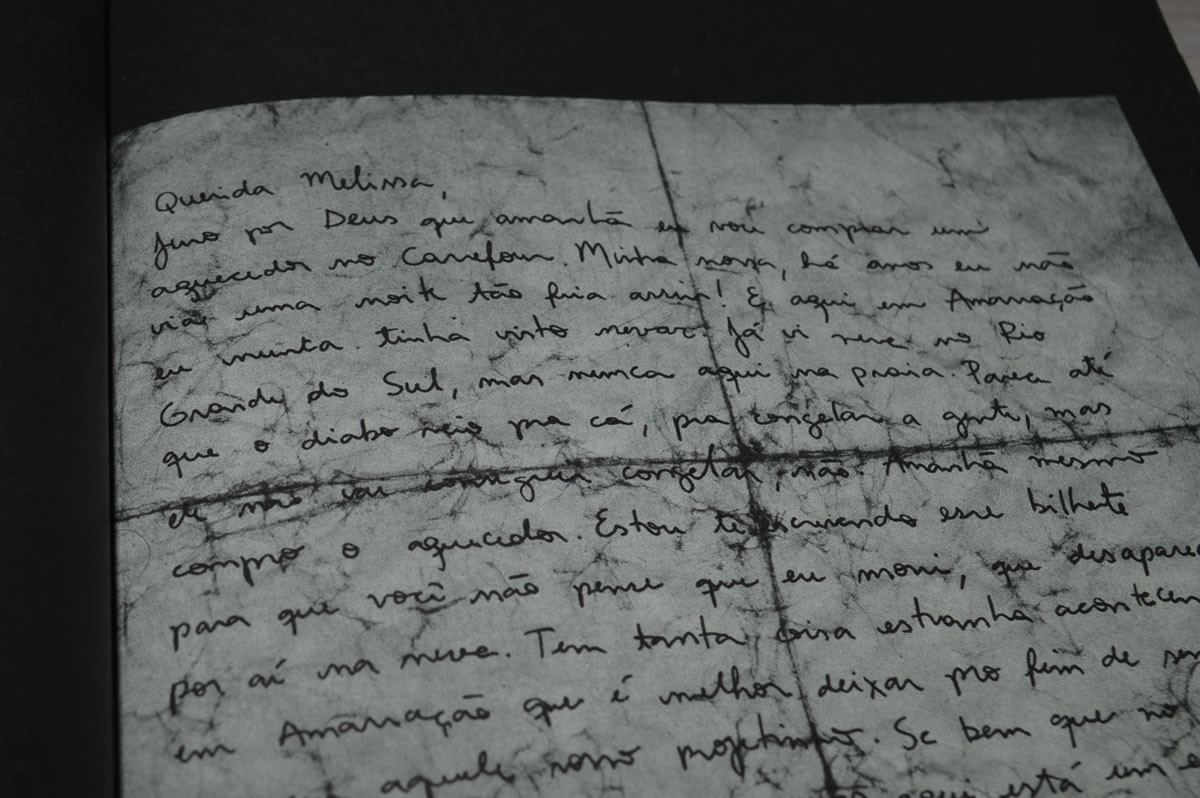 Querida Melissa,
Juro por Deus que amanhã eu vou comprar um
aquecedor no Carrefour. Minha nossa, há anos eu não
via uma noite tão fria assim! E aqui em Amarração
eu nunca tinha visto nevar. Já vi neve no Rio
Grande do Sul, mas nunca aqui na praia. Parece até
que o diabo veio pra cá, pra congelar a gente, mas
ele não vai conseguir congelar, não. Amanhã mesmo
compro o aquecedor. Estou te escrevendo esse bilhete
para que você não pense que eu morri, que desaparec
por aí na neve. Tem tanta coisa estranha acontecen
em Amarração que é melhor deixar pro fim de sem
aquele nosso projetinho. Se bem que no
aqui está um